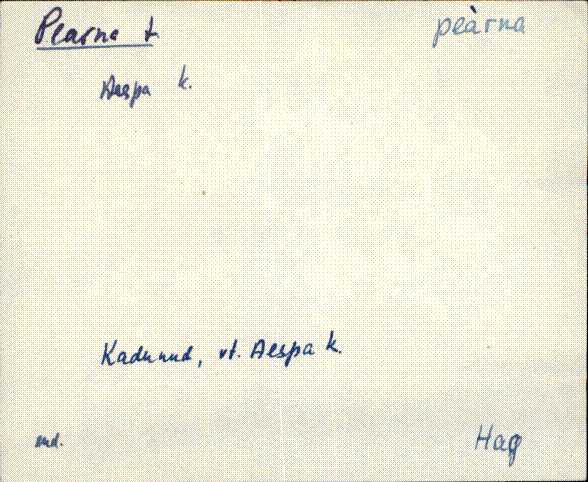 Pearna t. peàrna
Aespa k.
Kadunud, vt. Aespa k.
end. Hag